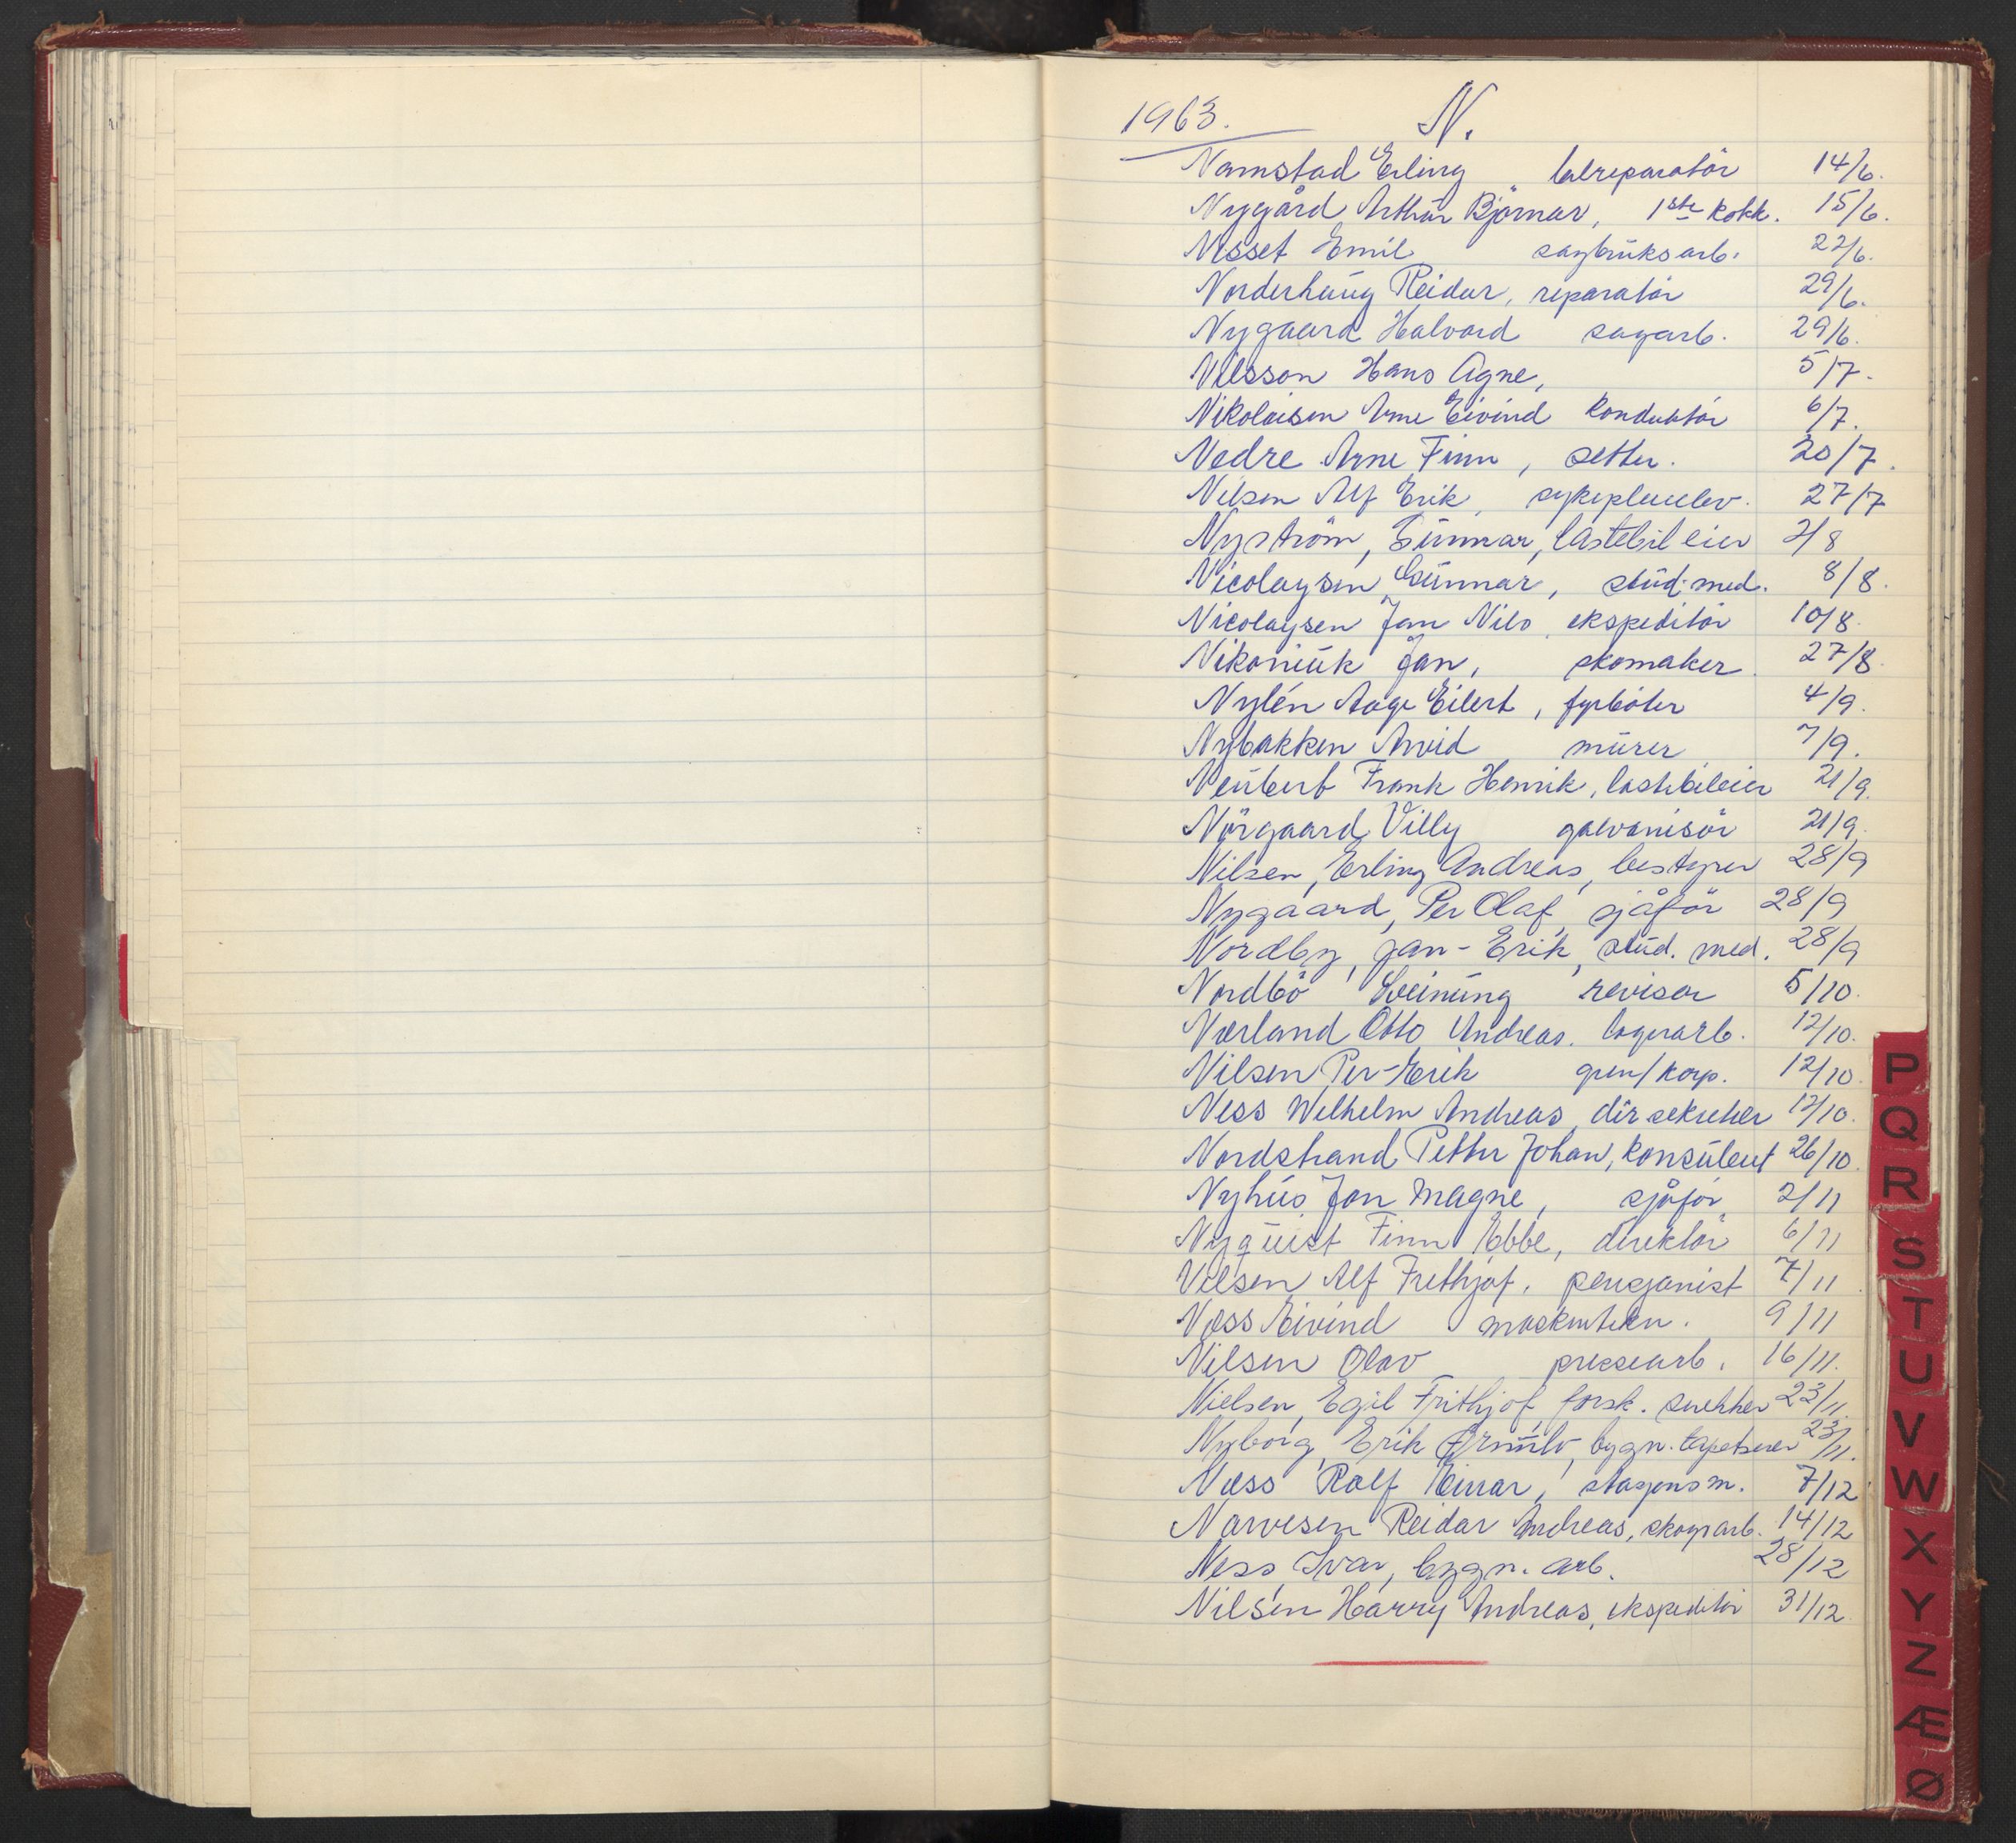 1963. N.
Namstad Erling bilreparatör 14/6.
Nygård Arthur Björnar, 1ste kokk. 15/6.
Nisset Emil sagbruksarb. 22/6.
Norderhaug Reidar, reparatör 29/6.
Nygaard Halvard sagarb. 29/6.
Nilsson Hans Agne, 5/7.
Nikolaisen Arne Eivind konduktör 6/7.
Nedre Arne Finn, setter. 20/7.
Nilsen Alf Erik, sykepleieelev. 27/7
Nyström, Gunnar, lastebileier 2/8
Nicolaysen Gunnar, stud. med. 8/8.
Nicolaysen Jan Nils, ekspeditör 10/8.
Nikoniuk Jan, skomaker 27/8.
Nylén Aage Eilert, fyrböter 4/9.
Nybakken Arvid murer 7/9.
Neubert Frank Henrik, lastebileier 21/9.
Nörgaard Villy galvanisör 21/9.
Nilsen, Erling Andreas, bestyrer 28/9
Nygaard, Per Olaf, sjåför 28/9
Nordby, Jan-Erik, stud. med. 28/9
Nordbö Sveinung revisor 5/10.
Nærland Otto Andreas. lagerarb. 12/10.
Nilsen Per-Erik gren/korp. 12/10.
Ness Wilhelm Andreas, dir sekretær 12/10.
Nordstrand Petter Johan, konsulent 26/10.
Nyhus Jan Magne, sjåför 2/11
Nyquist Finn Ebbe, direktör 6/11
Nilsen Alf Frithjof, pensjonist 7/11
Næss Eivind maskintekn. 9/11
Nilsen Olav pressearb. 16/11.
Nielsen, Egil Frithjof, forsk. snekker 23/11.
Nyborg, Erik Ørnulv, bygn. tapetserer 23/11.
Næss Rolf Einar, stasjonsm. 7/12
Narvesen Reidar Andreas, skogsarb. 14/12
Ness, Ivar, bygn. arb. 28/12
Nilsen Harry Andreas, ekspeditör 31/12
P
Q
R
S
T
U
V
W
X
Y
Z
Æ
Ø